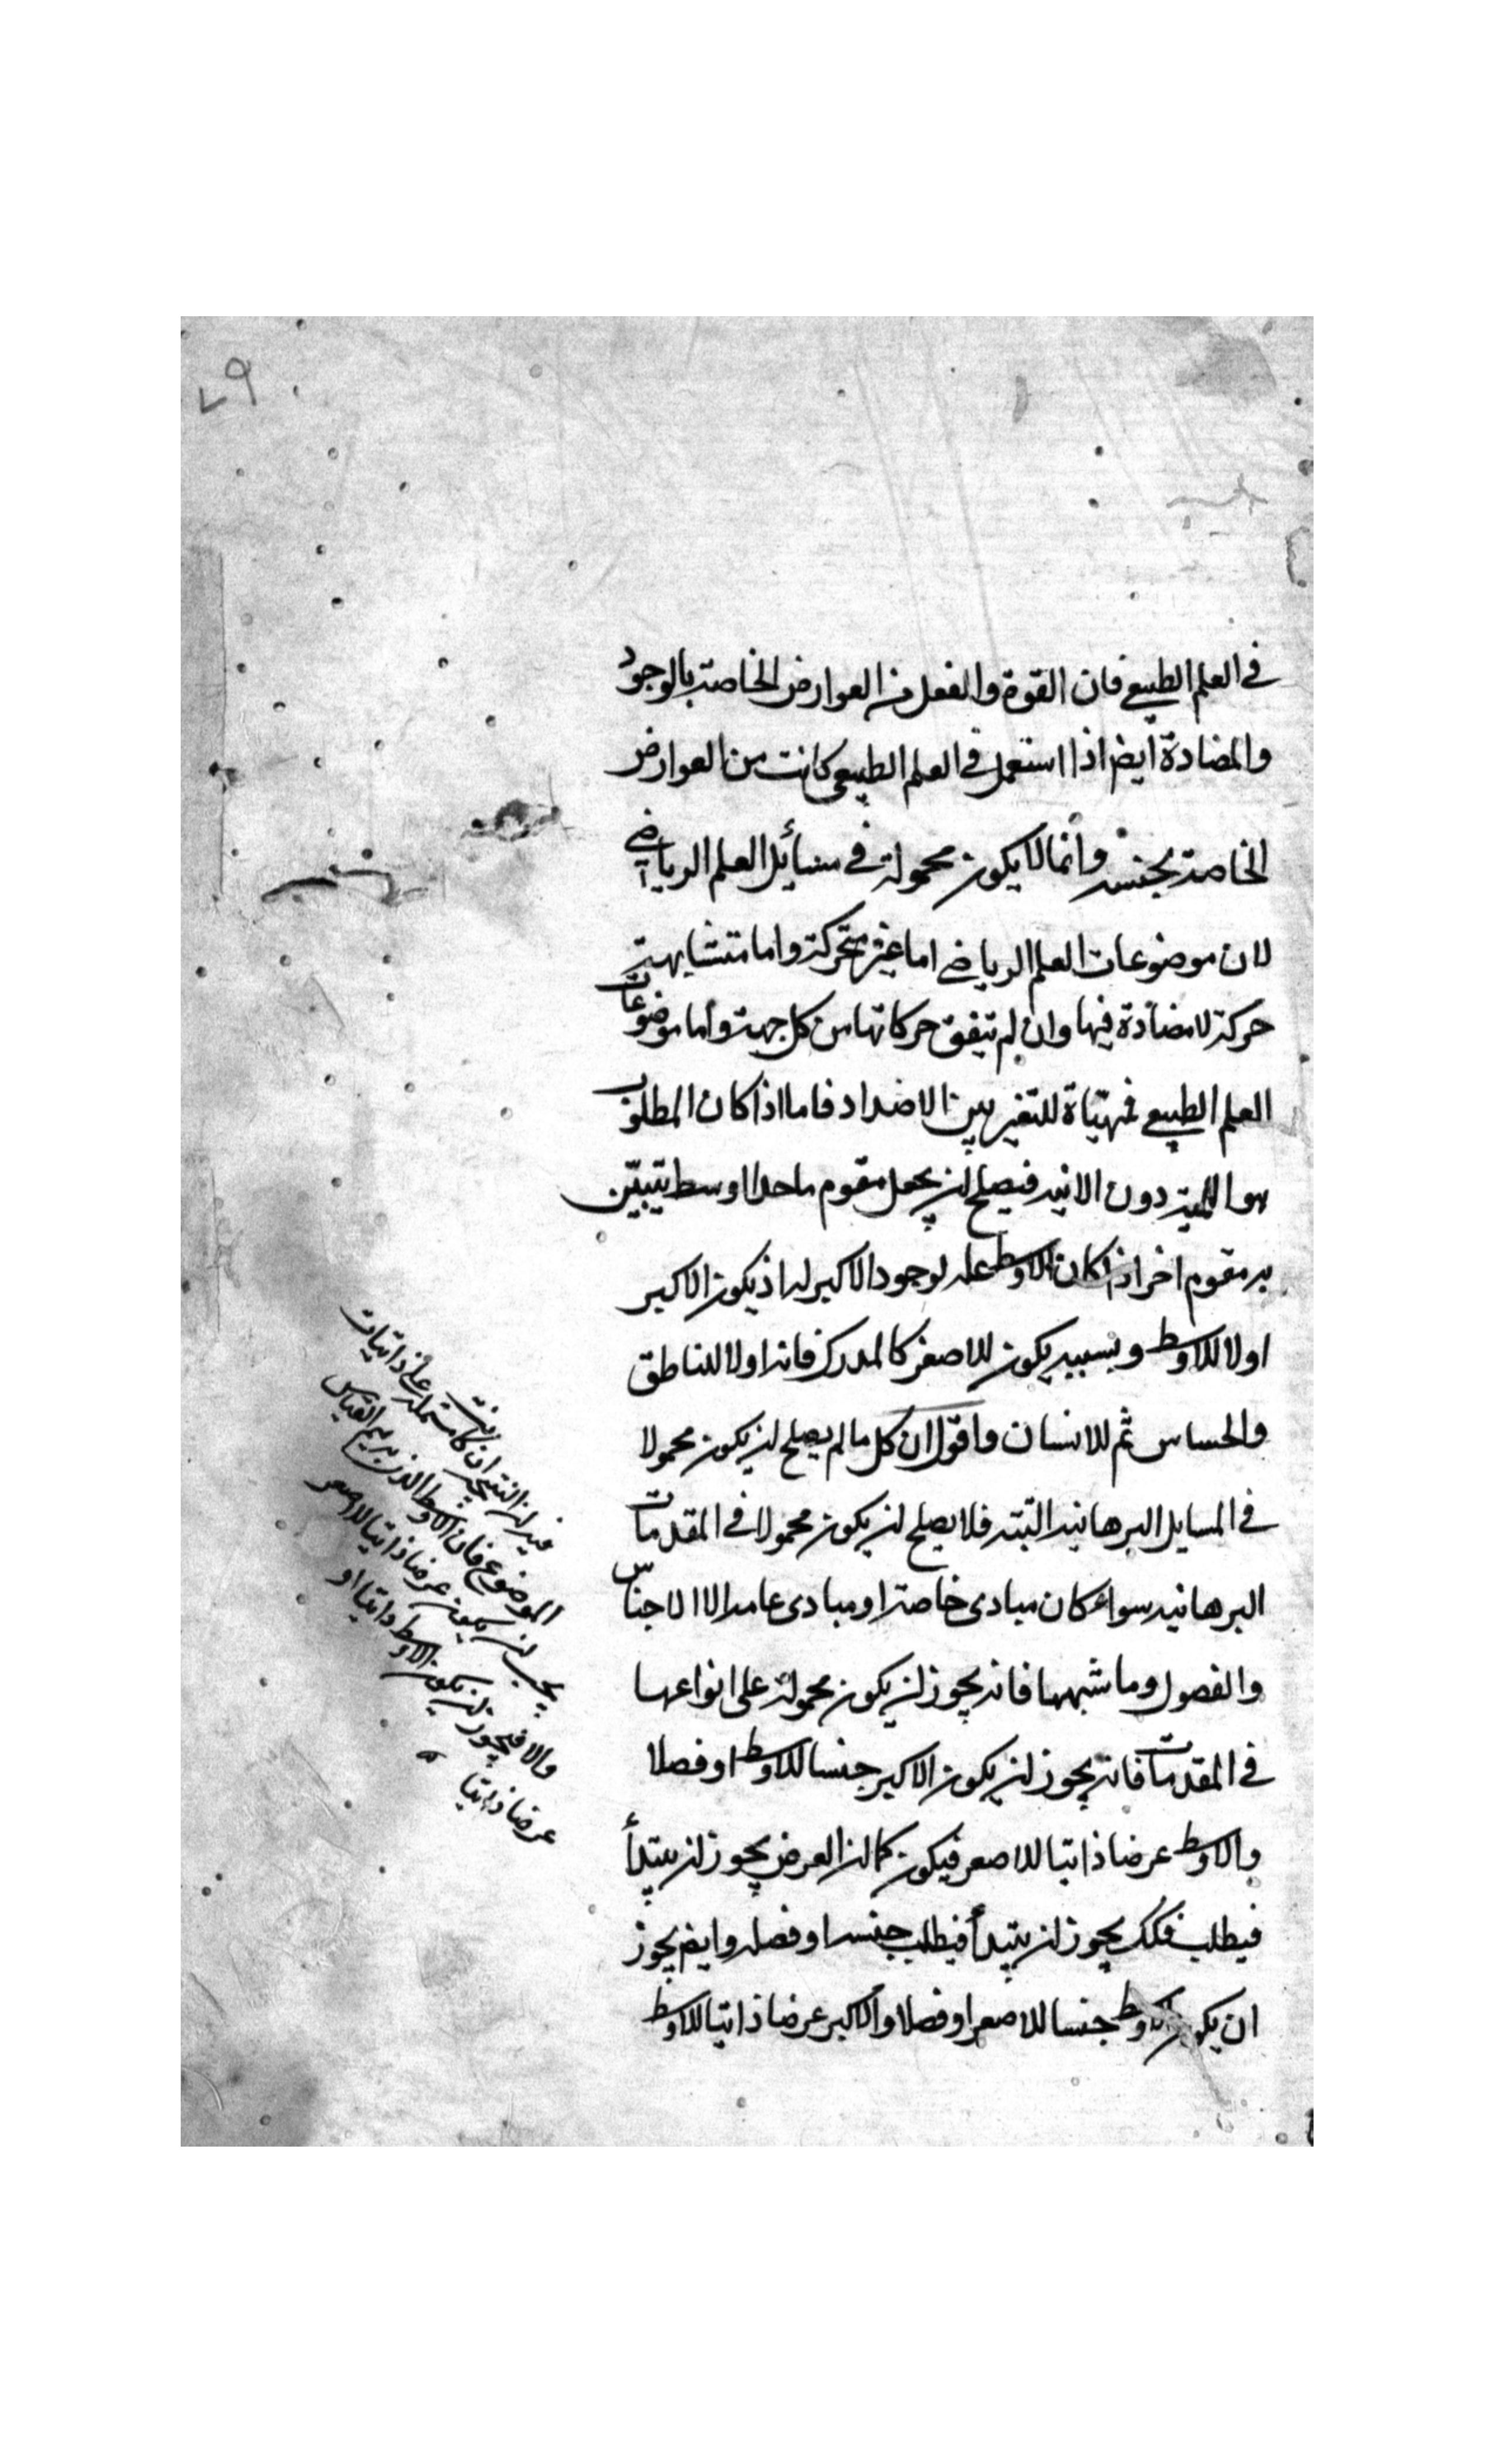 ٧٩
في العلم الطبيعي فان القوة والفعل من العوارض الخاصة بالوجود
والمضادة ايضا اذا استعمل في العلم الطبيعي كانت من العوارض
الخاصة بجنسه وانما لا يكون محمولة في مسائل العلم الرياضي
لان موضوعات العلم الرياضي اما غير متحركة واما متشابهة
حركة لا مضادة فيها وان لم تتفق حركاتها من كل جهة وأما موضوعات
العلم الطبيعي فمهيّاة للتغير بين الاضداد فاما اذا كان المطلوب
هو اللمية دون الانية فيصلح ان يجعل مقوم ما حدا اوسط يتبيّن
به مقوم اخر اذا كان الاوسط علة لوجود الاكبر له اذ يكون الاكبر
اولا للاوسط وبسببه يكون للاصغر كالمدرك فانه اولا للناطق
والحساس ثم للانسان واقول ان كل ما لم يصلح ان يكون محمولا
في المسايل البرهانية البتة فلا يصلح ان يكون محمولا في المقدمات
البرهانية سواء كان مبادى خاصة او مبادى عامة الا الاجناس
والفصول وما شبهها فانه يجوز ان يكون محمولة على انواعها
في المقدمات فانه يجوز ان يكون الاكبر جنسا للاوسط او فصلا
والاوسط عرضا ذاتيا للاصغر فيكون كما ان العرض يجوز ان يبتدأ
فيطلب فكك يجوز ان يبتدأ فيطلب جنسه او فصله وايضا يجوز
ان يكون الاوسط جنسا للاصغر او فصلا والاكبر عرضا ذاتيا للاوسط
فيه ان النتيجة ان كانت مشتملة على ذاتيات
الموضوع فان الاوسط الذى به يتم القياس
يجب ان يكون عرضا ذاتيا للاصغر
والا فيجوز ان يكون الاوسط ذاتيا او
عرضا ذاتيا